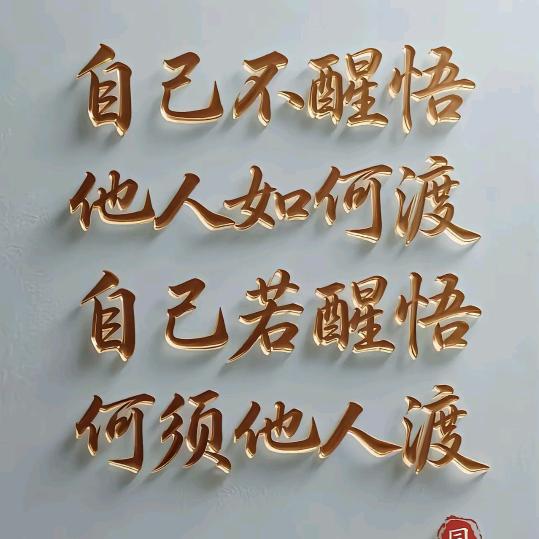 自己不醒悟
他人如何渡
自己若醒悟
何须他人渡